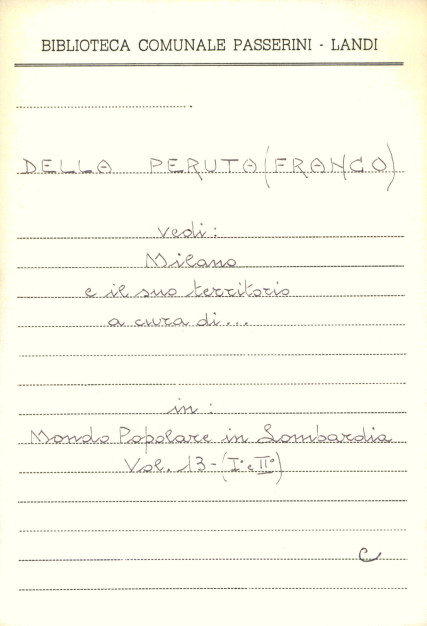 BIBLIOTECA COMUNALE PASSERINI - LANDI
DELLA PERUTA (FRANCO)
vedi:
Milano
e il suo territorio
a cura di...
in:
Mondo Popolare in Lombardia
Vol. 13 - (I° e II°)
C